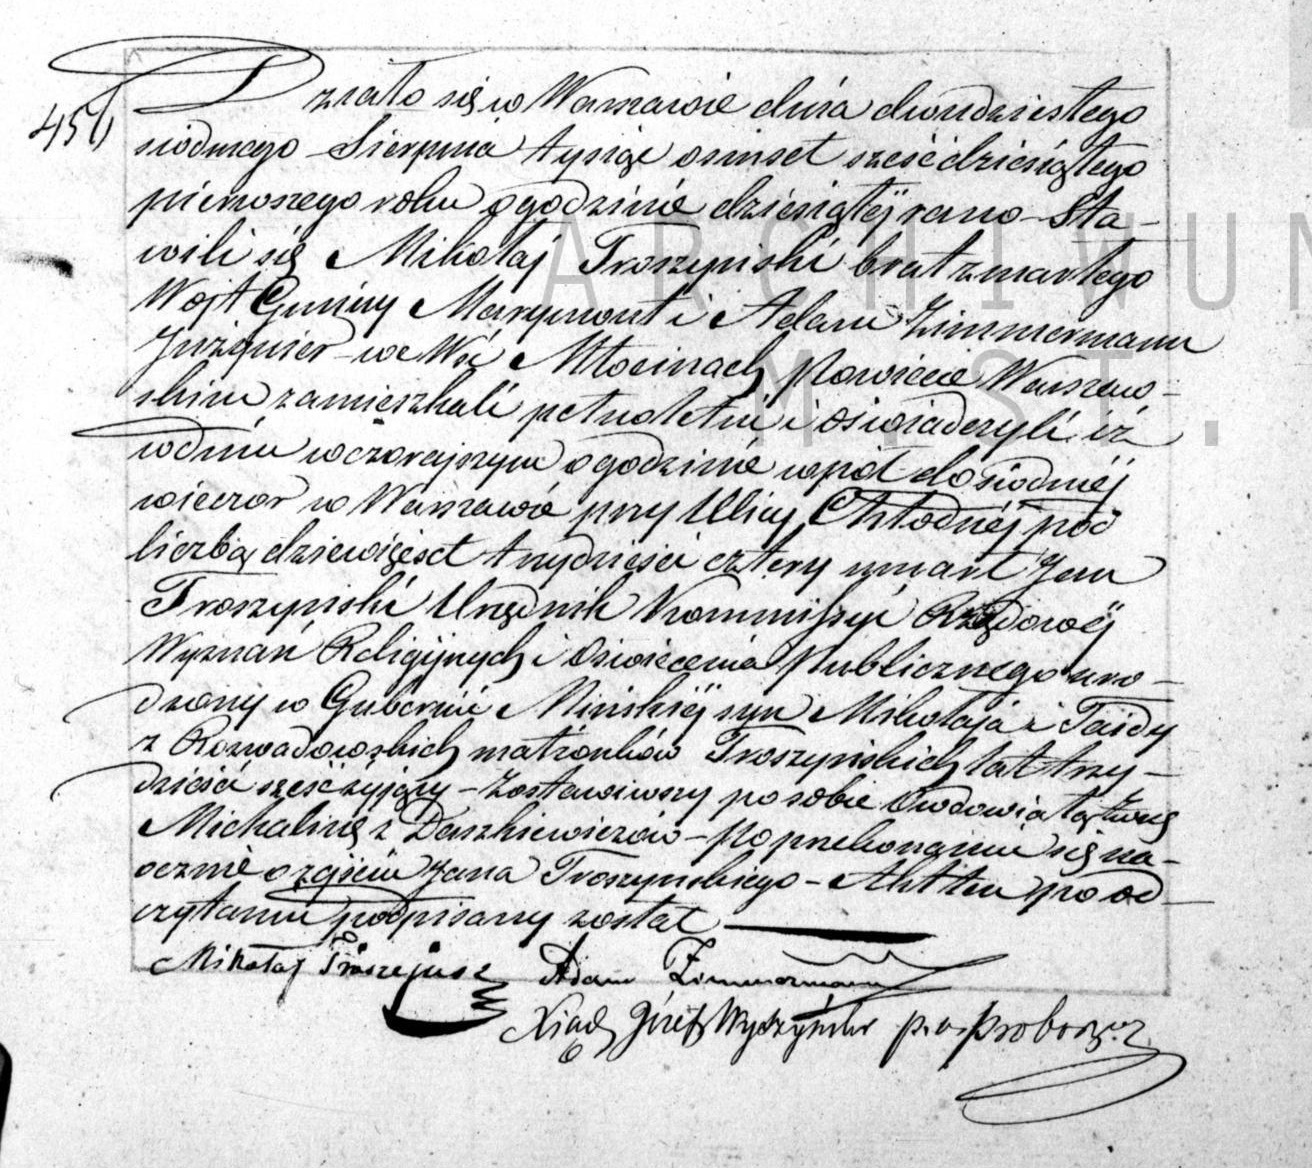 450
Działo się w Warszawie dnia dwudziestego
siódmego Sierpnia tysiąc osimset sześćdziesiątego
pierwszego roku o godzinie dziesiątéj rano – Sta-
wili się Mikołaj Troszyński brat zmarłego
Wójt Gminy Marymont i Adam Zimmermann
Inżynier we Wsi Młocinach Powiecie Warszaw-
skim zamieszkali pełnoletni i oświadczyli iż
w dniu wczorajszym o godzinie w pół do siódméj
wieczór w Warszawie przy Ulicy Chłodnéj pod
liczbą dziewięćset trzydzieści cztery umarł Jan
Troszyński Urzędnik Kommissyi Rządowéj
Wyznań Religijnych i Oświecenia Publicznego uro-
dzony w Gubernii Mińskiéj syn Mikołaja i Taidy
z Rozwadowskich małżonków Troszyńskich lat trzy-
dzieści sześć żyjący – Zostawiwszy po sobie owdowiałą żonę
Michalinę z Daszkiewiczów – Po przekonaniu się na-
ocznie o zejściu Jana Troszyńskiego – Akt ten po od-
czytaniu podpisany został
Mikołaj Adam Zimmermann
Xiądz Józef Wyszyński p. o. Proboszcz
ARCHIWUM
M.ST.